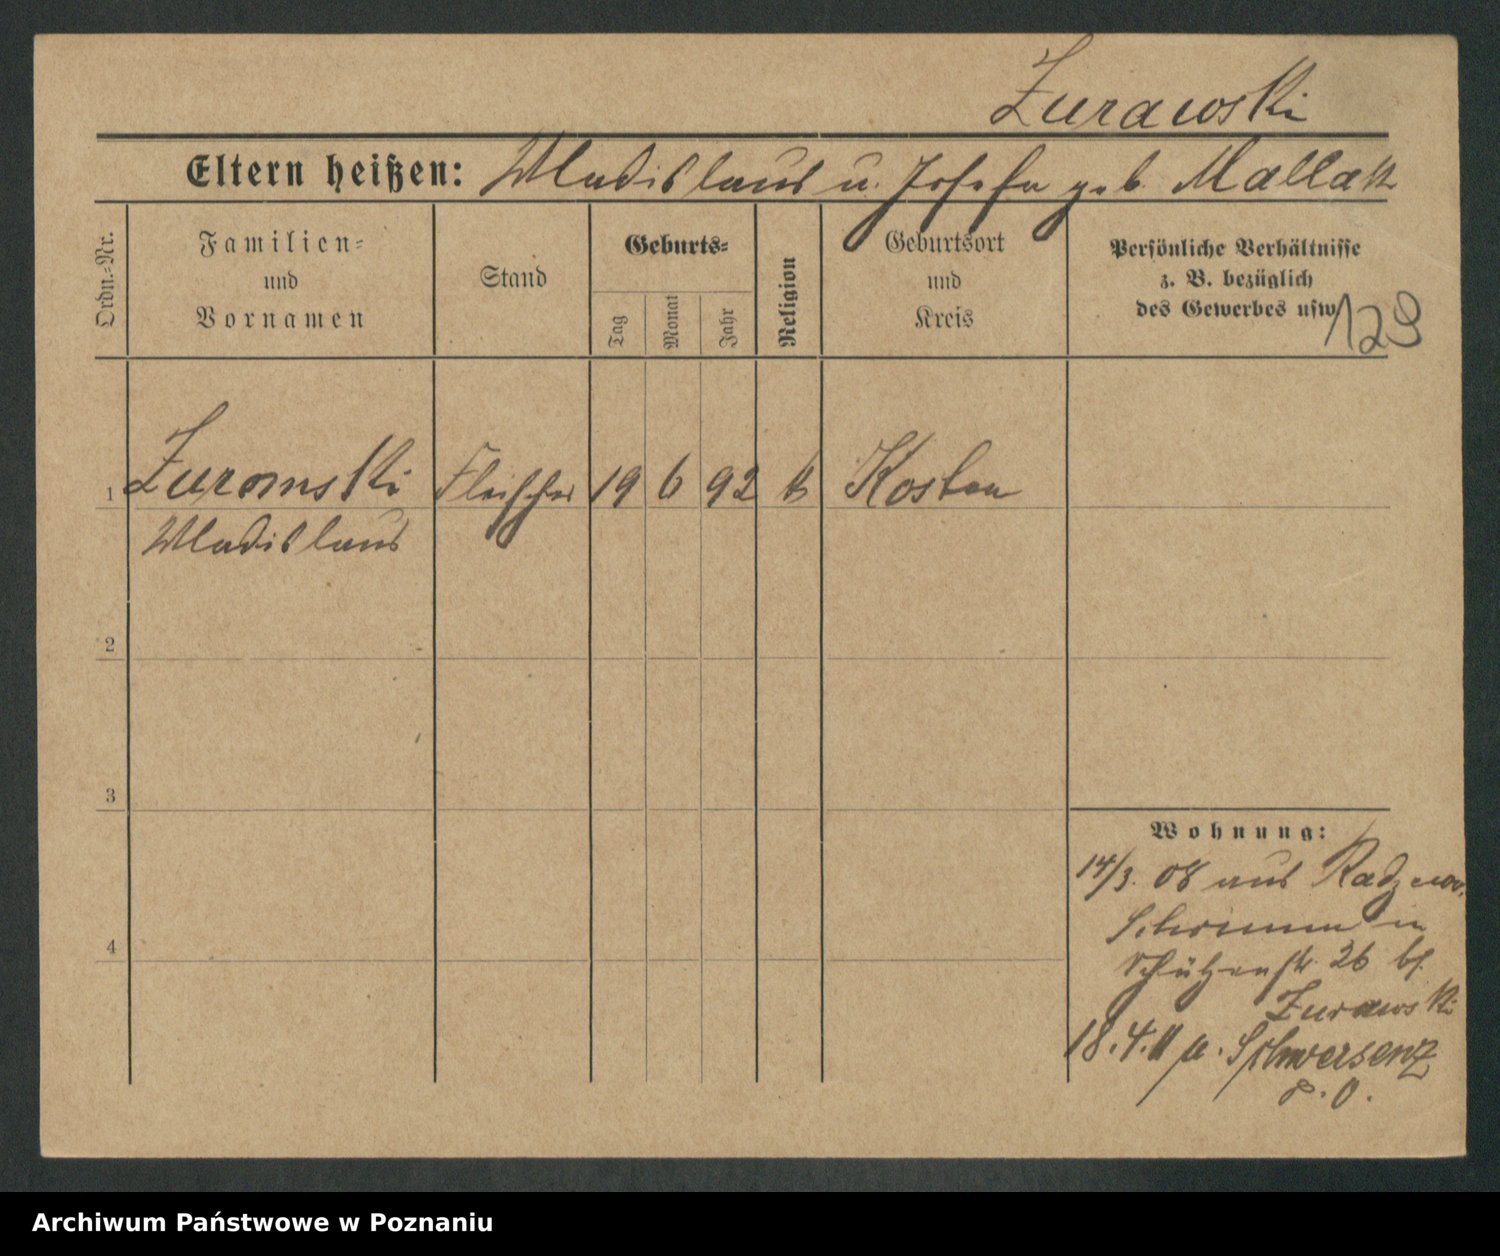 Zurawski
Eltern heißen: Wladislaus u. Josefa geb. Mallak
Ordn.-Nr.
Familien-
und
Vornamen
Stand
Geburts-
Tag
Monat
Jahr
Religion
Geburtsort
und
Kreis
Persönliche Verhältnisse
z. B. bezüglich
des Gewerbes usw.
129
1 Zurowski Fleischer 19 6 92 k Kosten
Wladislaus
2
3
4
Wohnung:
14/3. 08 aus
Schrimm in
Schützenstr. 26 bf.
Zurawski
18.4.11 n. Schwersenz
Archiwum Państwowe w Poznaniu